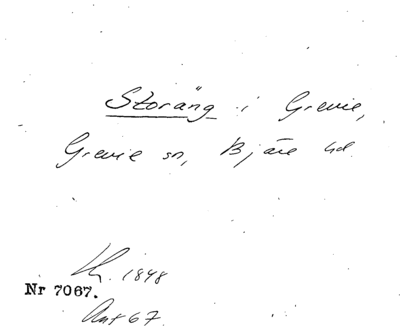 Storäng i Grevie,
Grevie sn, Bjäre hd.
1848
Nr 7067.
Ant 67.